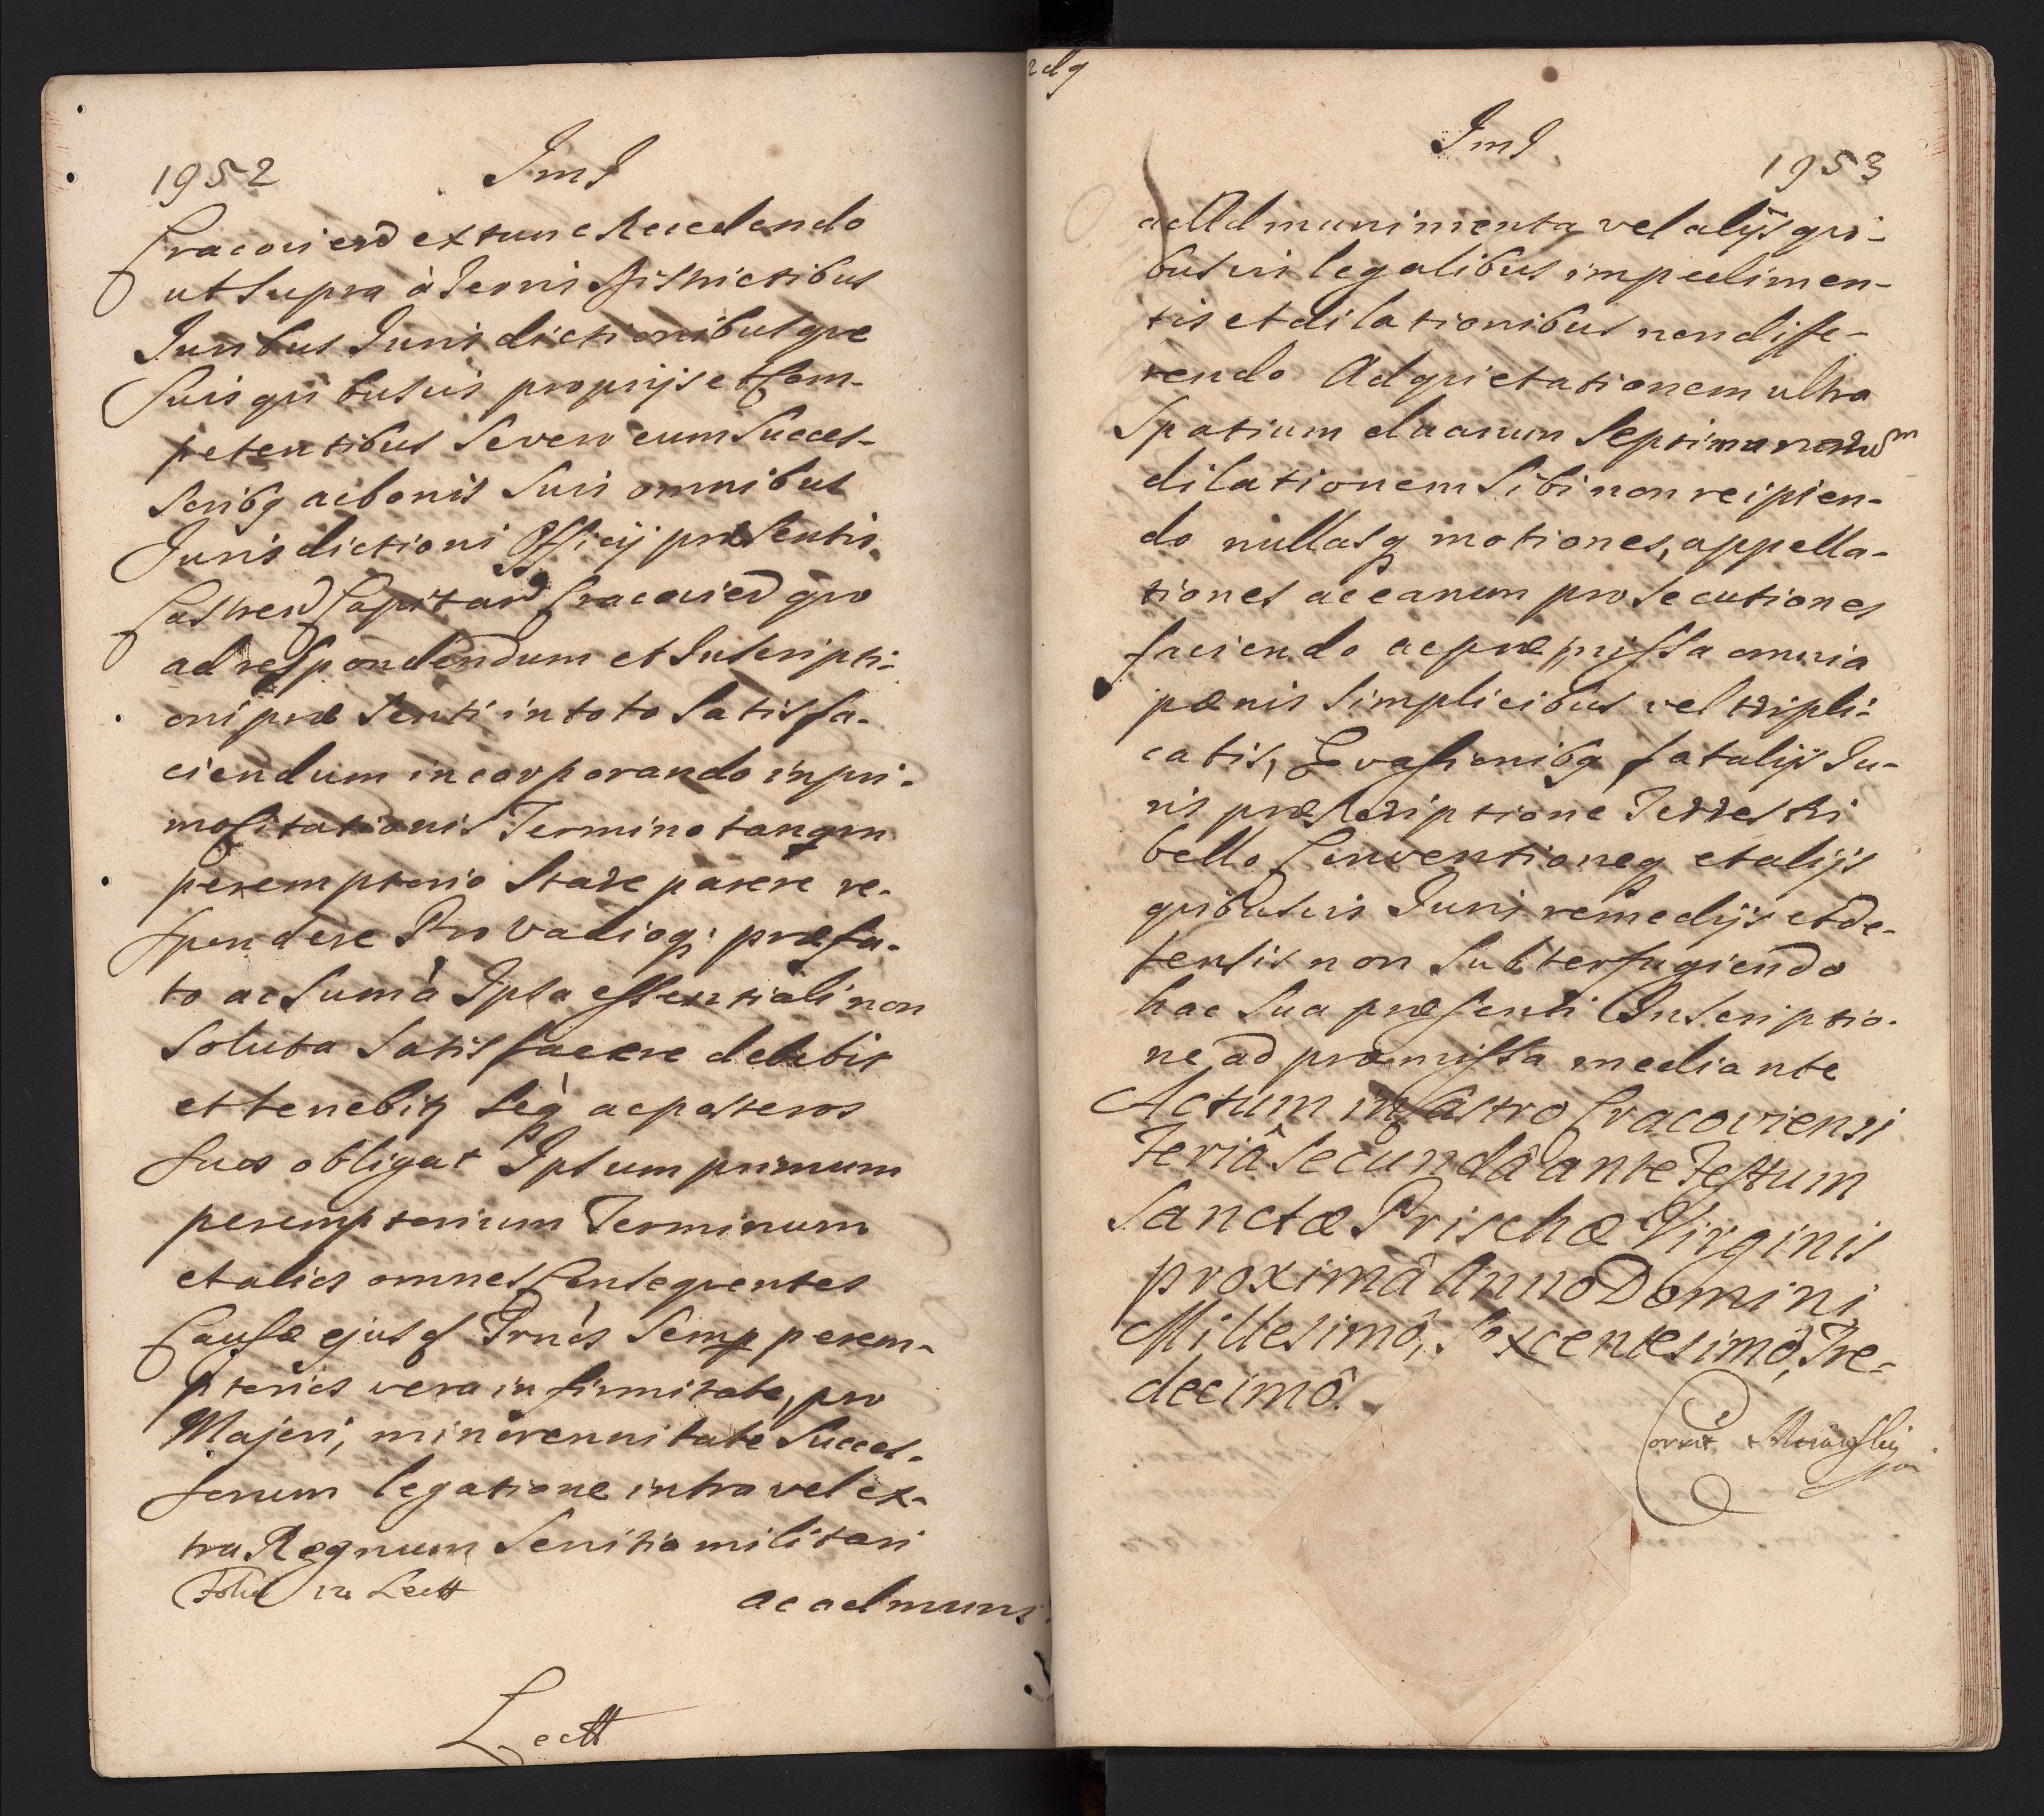 1952
Cracovien extunc Recedendo
ut supra à Terris Districtibus
Juribus Jurisdictionibusque
suis quibusvis proprijs et Com-
petentibus se vero cum Succes-
soribq ac bonis suis omnibus
Jurisdictioni Officij præsentis
Castren Capitan Cracovien quo
ad respondendum et Inscripti-
oni præsenti in toto satisfa-
ciendum incorporando inpri-
mo Citationis Termino tanqm
peremptorio Stare parere re-
spondere Pro Vadioq; præfa-
to ac Sumâ Ipsa essentiali non
soluta satisfacere debebit
et tenebitq seq ac posteros
suos obligat Ipsum primum
peremptorium Terminum
et alios omnes Consequentes
Causæ ejusd semp perem-
ptorios vera infirmitate, pro
Majori, minorennitate Succes-
sorum legatione intra vel ex-
tra Regnum Servitio militari
in Lectt
ac ad muni
Lectt
1953
ac Ad munimenta vel alijs qui-
busvis legalibus impedimen-
tis et dilationibus non diffe-
rendo Ad quietationem ultra
Spatium duarum Septimanarum
dilationem Sibi non recipien-
do nullasq motiones, appella-
tiones ac earum prosecutiones
faciendo ac præmissa omnia
pœnis simplicibus vel tripli-
catis, Evasionibq fatalijs Ju-
ris præscriptione Terrestri
bello Conventioneq et alijs
quibusvis Juris remedijs et de-
fensis non Subterfugiendo
hac Sua præsenti Inscriptio-
ne ad præmissa mediante
Actum in Castro Cracoviensi
Feriâ Secundâ ante Festum
Sanctæ Prischæ Virginis
proximâ Anno Domini
Millesimô, Sexcentesimô, Tre-
decimô.